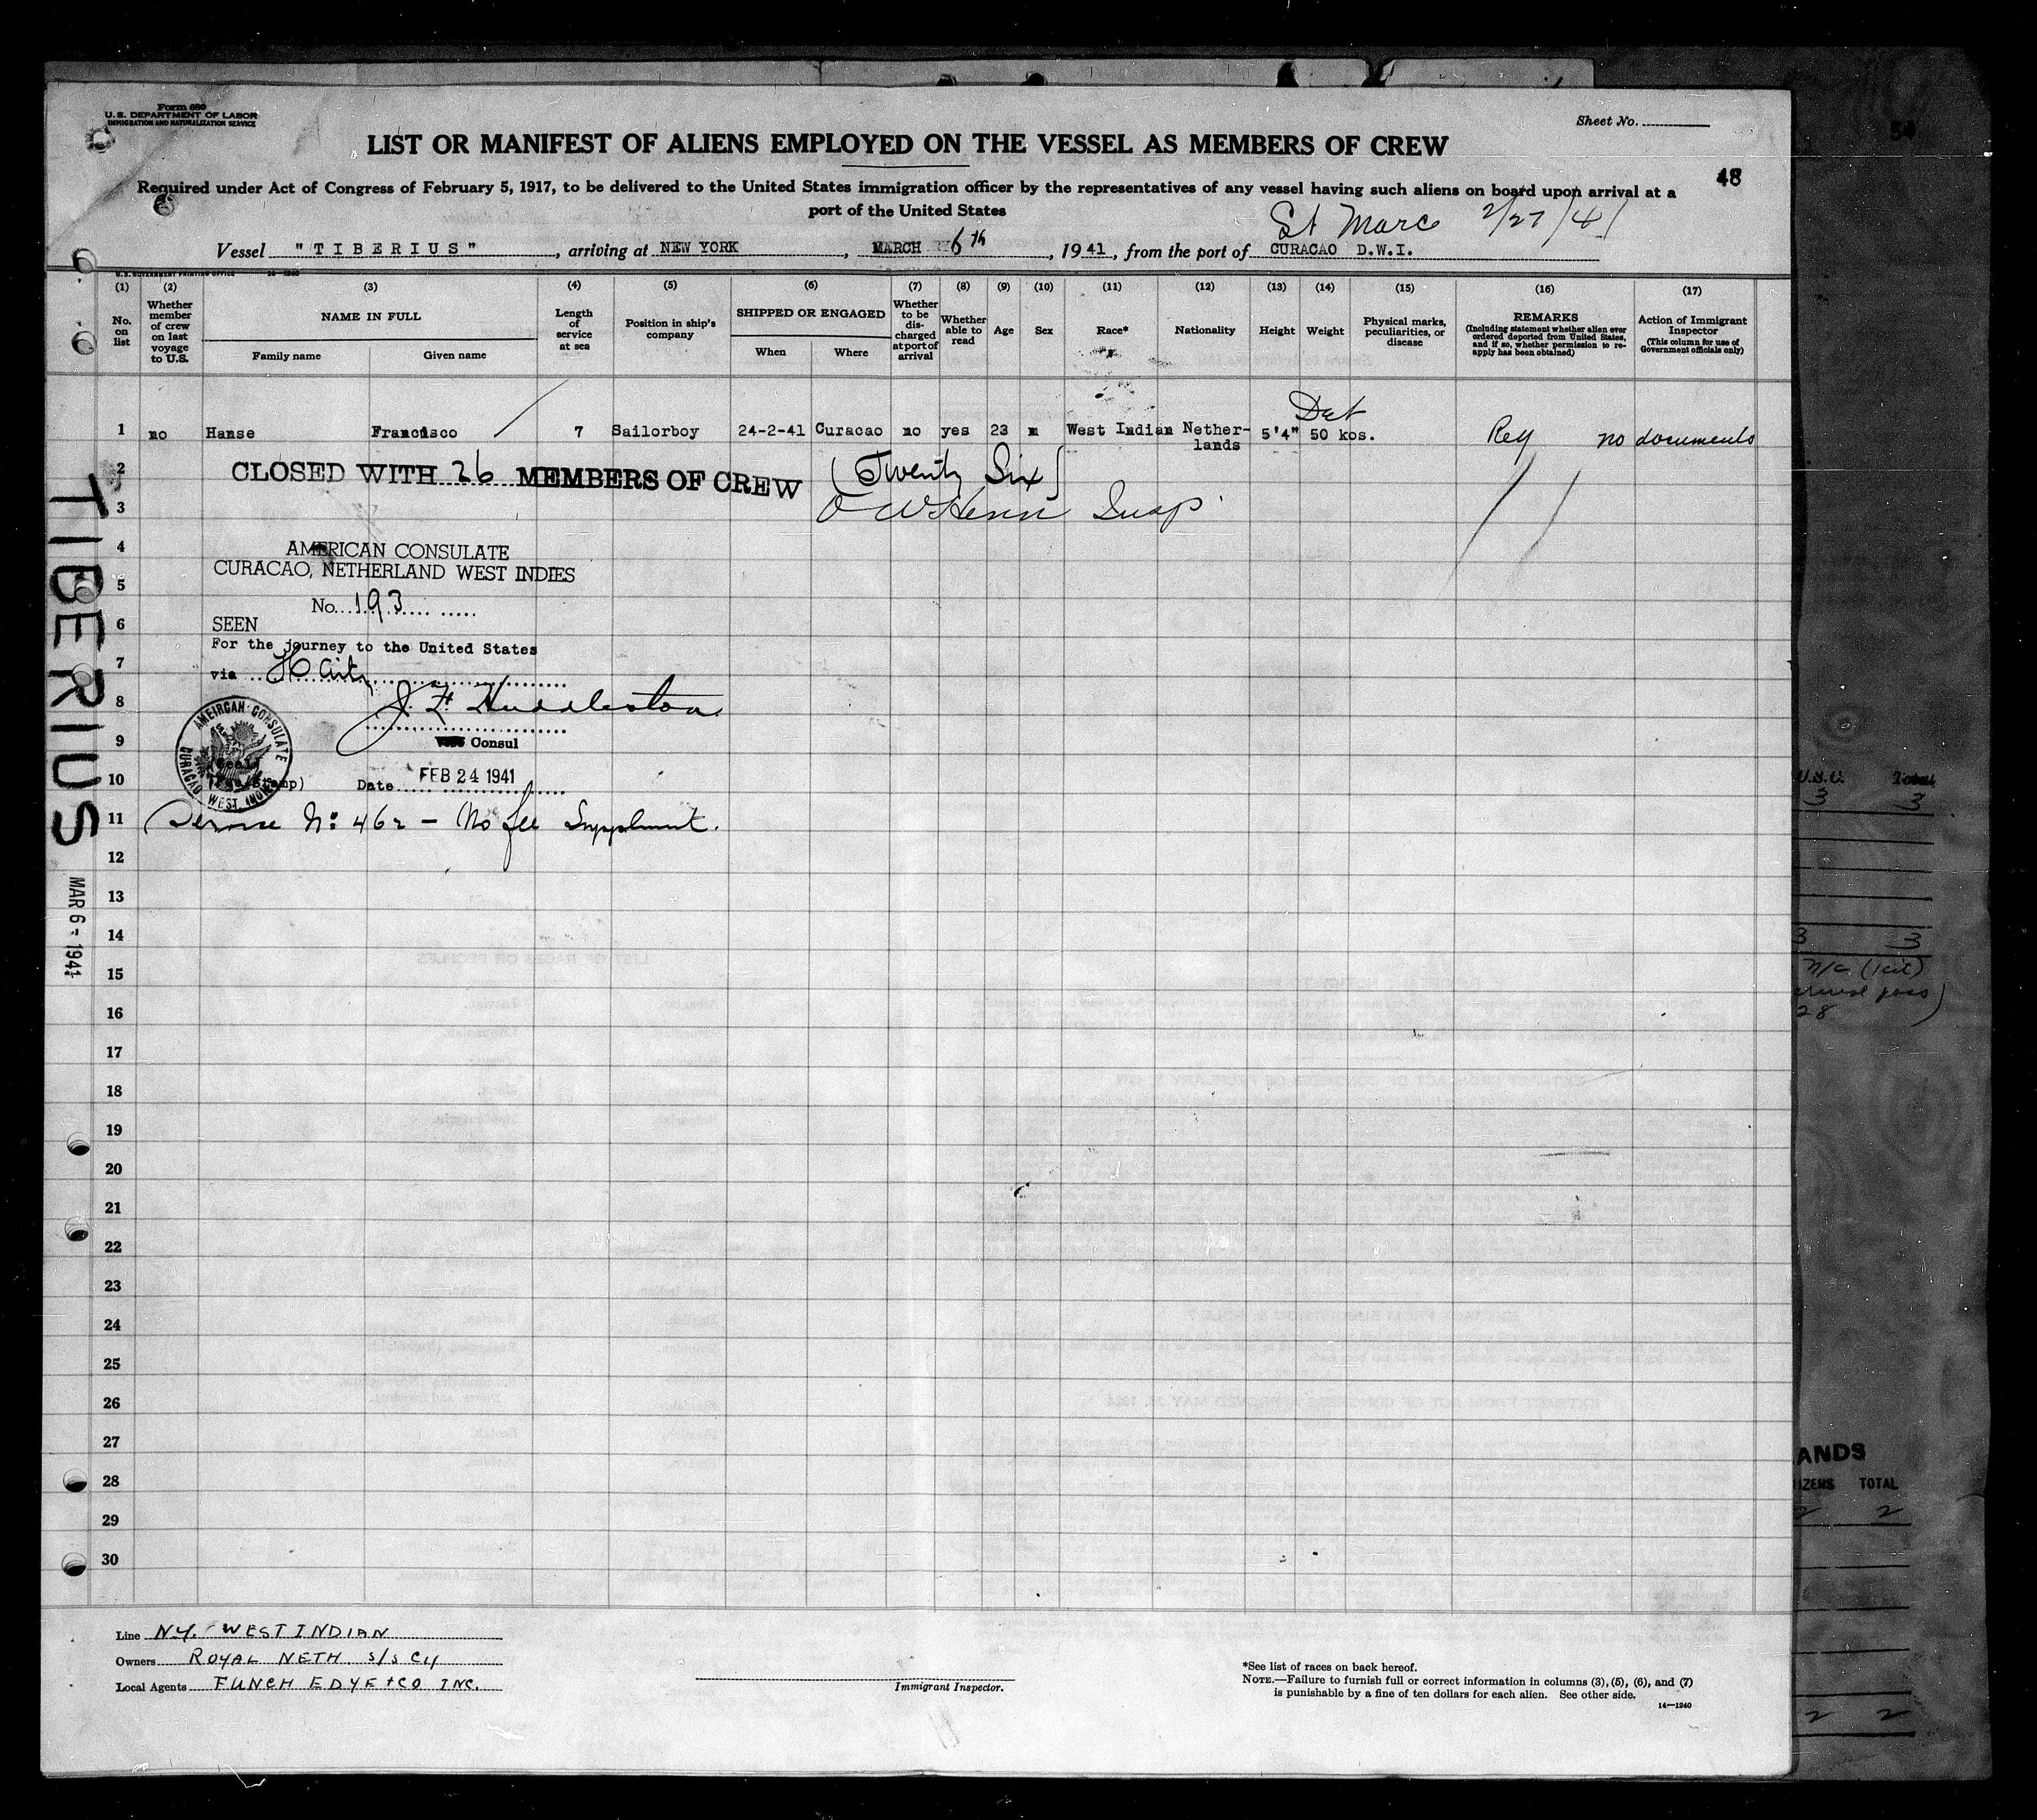 Form 689
U.S. DEPARTMENT OF LABOR
IMMIGRATION AND NATURALIZATION SERVICE
Sheet No.
LIST OR MANIFEST OF ALIENS EMPLOYED ON THE VESSEL AS MEMBERS OF CREW
48
Required under Act of Congress of February 5, 1917, to be delivered to the United States immigration officer by the representatives of any vessel having such aliens on board upon arrival at a
port of the United States
St Marc 2/27/41
Vessel "TIBERIUS", arriving at NEW YORK, MARCH 6th, 1941, from the port of CURACAO D.W.I.
U.S. GOVERNMENT PRINTING OFFICE 14-1240
(1) (2) (3) (4) (5) (6) (7) (8) (9) (10) (11) (12) (13) (14) (15) (16) (17)
No. on list
Whether member of crew on last voyage to U.S.
NAME IN FULL
Family name Given name
Length of service at sea
Position in ship's company
SHIPPED OR ENGAGED
When Where
Whether to be discharged at port of arrival
Whether able to read
Age
Sex
Race*
Nationality
Height
Weight
Physical marks, peculiarities, or disease
REMARKS
(Including statement whether alien ever ordered deported from United States, and if so, whether permission to reapply has been obtained)
Action of Immigrant Inspector
(This column for use of Government officials only)
1 no Hanse Francisco 7 Sailorboy 24-2-41 Curacao no yes 23 m West Indian Netherlands 5'4" 50 kos. Reg no documents
2
CLOSED WITH 26 MEMBERS OF CREW (Twenty Six)
3
Insp
4
AMERICAN CONSULATE
5
CURACAO, NETHERLAND WEST INDIES
No. 193
6
SEEN
For the journey to the United States
7
via Haiti
8
J. F. Huddleston
9
Consul
AMERICAN CONSULATE
CURACAO WEST INDIES
10
Date FEB 24 1941
11
Service No 462 - No fee Supplment.
12
13
14
15
16
17
18
19
20
21
22
23
24
25
26
27
28
29
30
TIBERIUS
MAR 6 - 1941
Line N.Y. WEST INDIAN
Owners ROYAL NETH S/S CY
Local Agents FUNCH EDYE + CO INC.
Immigrant Inspector.
*See list of races on back hereof.
NOTE.—Failure to furnish full or correct information in columns (3), (5), (6), and (7)
is punishable by a fine of ten dollars for each alien. See other side.
14—1240
U.S.C. Total
3 3
3 3
28
ANDS
IZENS TOTAL
2 2
2 2